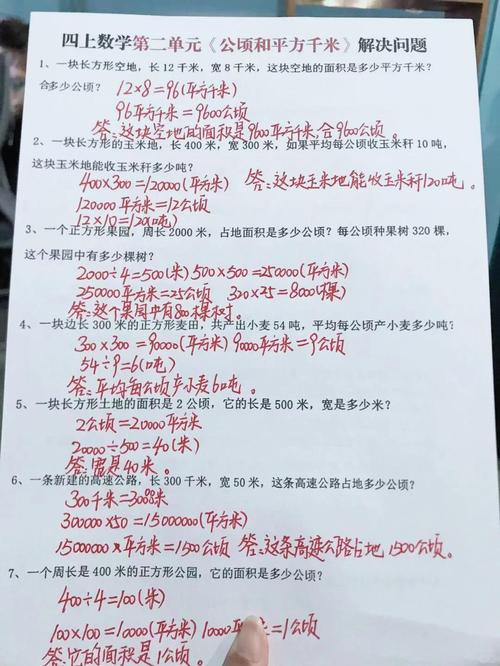 四上数学第二单元《公顷和平方千米》解决问题
1、一块长方形空地，长 12 千米，宽 8 千米，这块空地的面积是多少平方千米？
合多少公顷？ 12×8=96(平方千米)
96平方千米=9600公顷
答:这块空地的面积是9600平方千米,合9600公顷.
2、一块长方形的玉米地，长 400 米，宽 300 米，如果平均每公顷收玉米秆 10 吨，
这块玉米地能收玉米秆多少吨？
400×300=120000(平方米) 答:这块玉米地能收玉米秆120吨。
120000平方米=12公顷
12×10=120(吨)
3、一个正方形果园，周长 2000 米，占地面积是多少公顷？每公顷种果树 320 棵，
这个果园中有多少棵树？
2000÷4=500(米) 500×500=250000(平方米)
250000平方米=25公顷 320×25=8000(棵)
答:这个果园中有800棵树.
4、一块边长 300 米的正方形麦田，共产出小麦 54 吨，平均每公顷产小麦多少吨？
300×300=90000(平方米) 90000平方米=9公顷
54÷9=6(吨)
答:平均每公顷产小麦6吨。
5、一块长方形土地的面积是 2 公顷，它的长是 500 米，宽是多少米？
2公顷=20000平方米
20000÷500=40(米)
答:宽是40米。
6、一条新建的高速公路，长 300 千米，宽 50 米，这条高速公路占地多少公顷？
300千米=300000米
300000×50=15000000(平方米)
15000000平方米=1500公顷 答:这条高速公路占地1500公顷。
7、一个周长是 400 米的正方形公园，它的面积是多少公顷？
400÷4=100(米)
100×100=10000(平方米) 10000平 米=1公顷
答:它的面积是1公顷。